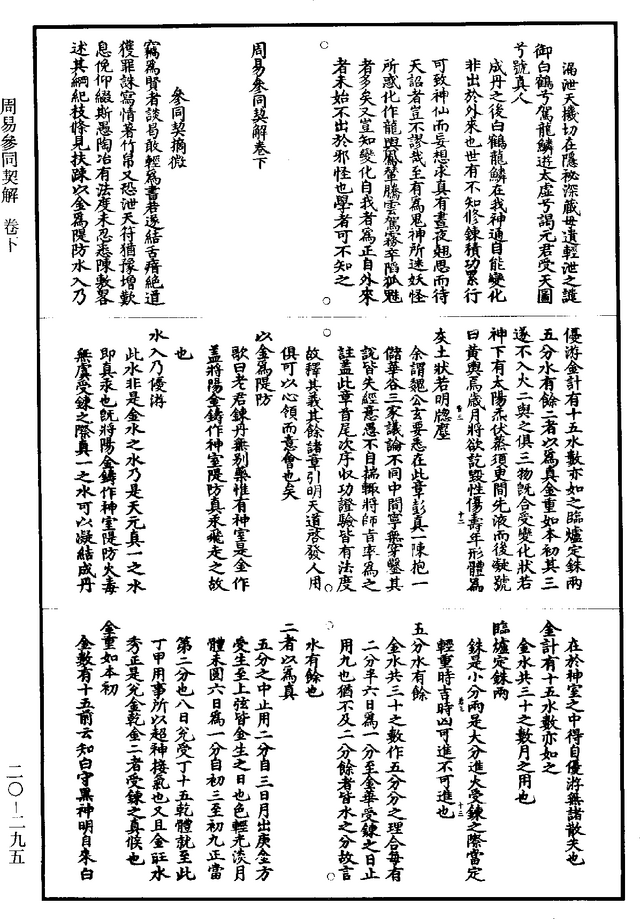 漏泄天機切在隱祕深藏毋遺輕泄之譴
御白鶴兮駕龍鱗遊太虛兮謁元君受天圖
兮號真人
成丹之後白鶴龍鱗在我神通自能變化
非出於外來也世有不知修鍊積功累行
可致神仙而妄想求真有晝夜翹思而待
天詔者豈不謬哉至有為鬼神所迷妖怪
所惑化作龍輿鳳輦騰雲駕霧卒陷狐魅
者多矣又豈知變化自我者為正自外來
者未始不出於邪怪也學者可不知之
周易參同契解卷下
參同契摘微
竊為賢者談曷敢輕為書若遂結舌瘖絕道
獲罪誅寫情著竹帛又恐泄天符猶豫增歎
息俛仰綴斯愚陶冶有法度未忍悉陳敷畧
述其綱紀枝條見扶踈以金為隄防水入乃
優游金計有十五水數亦如之臨爐定銖兩
五分水有餘二者以為真金重如本初其三
遂不入火二與之俱三物既合受變化狀若
神下有太陽炁伏蒸須臾間先液而後凝號
曰黃輿焉歲月將欲訖毀性傷壽年形體為
灰土狀若明牕塵
余謂魏公玄要悉在此章彭真一陳抱一
儲華谷三家議論不同中間寧無穿鑿其
說皆失經意愚不自揣輙將師肯率為之
註蓋此章首尾次序收功證驗皆有法度
故釋其義其餘諸章引明天道啓發人用
俱可以心領而意會也矣
以金為隄防
歌曰老君鍊丹無别藥惟有神室是金作
蓋將陽金鑄作神室隄防真汞飛走之故
也
水入乃優游
此水非是金水之水乃是天元真一之水
即真汞也既將陽金鑄作神室隄防火毒
無虞受鍊之際真一之水可以凝結成丹
在於神室之中得自優游無諸散失也
金計有十五水數亦如之
金水共三十之數月之用也
臨爐定銖兩
銖是小分兩是大分進火受鍊之際當定
輕重時吉時凶可進不可進也
五分水有餘
金水共三十之數作五分分之理合每有
二分半六日為一分至金華受鍊之日止
用九也猶不及二分餘者皆水之分故言
水有餘也
二者以為真
五分之中止用二分自三日月出庚金方
受生至上弦皆金生之日也色輕光淡月
體未圓六日為一分自初三至初九正當
第二分也八日兌受丁十五乾體就至此
丁甲用事所以超神接氣也又且金旺水
秀正是兌金乾金二者受鍊之真候也
金重如本初
金數有十五前云知白守黑神明自來白
周易參同契解 卷下
二〇-二九五